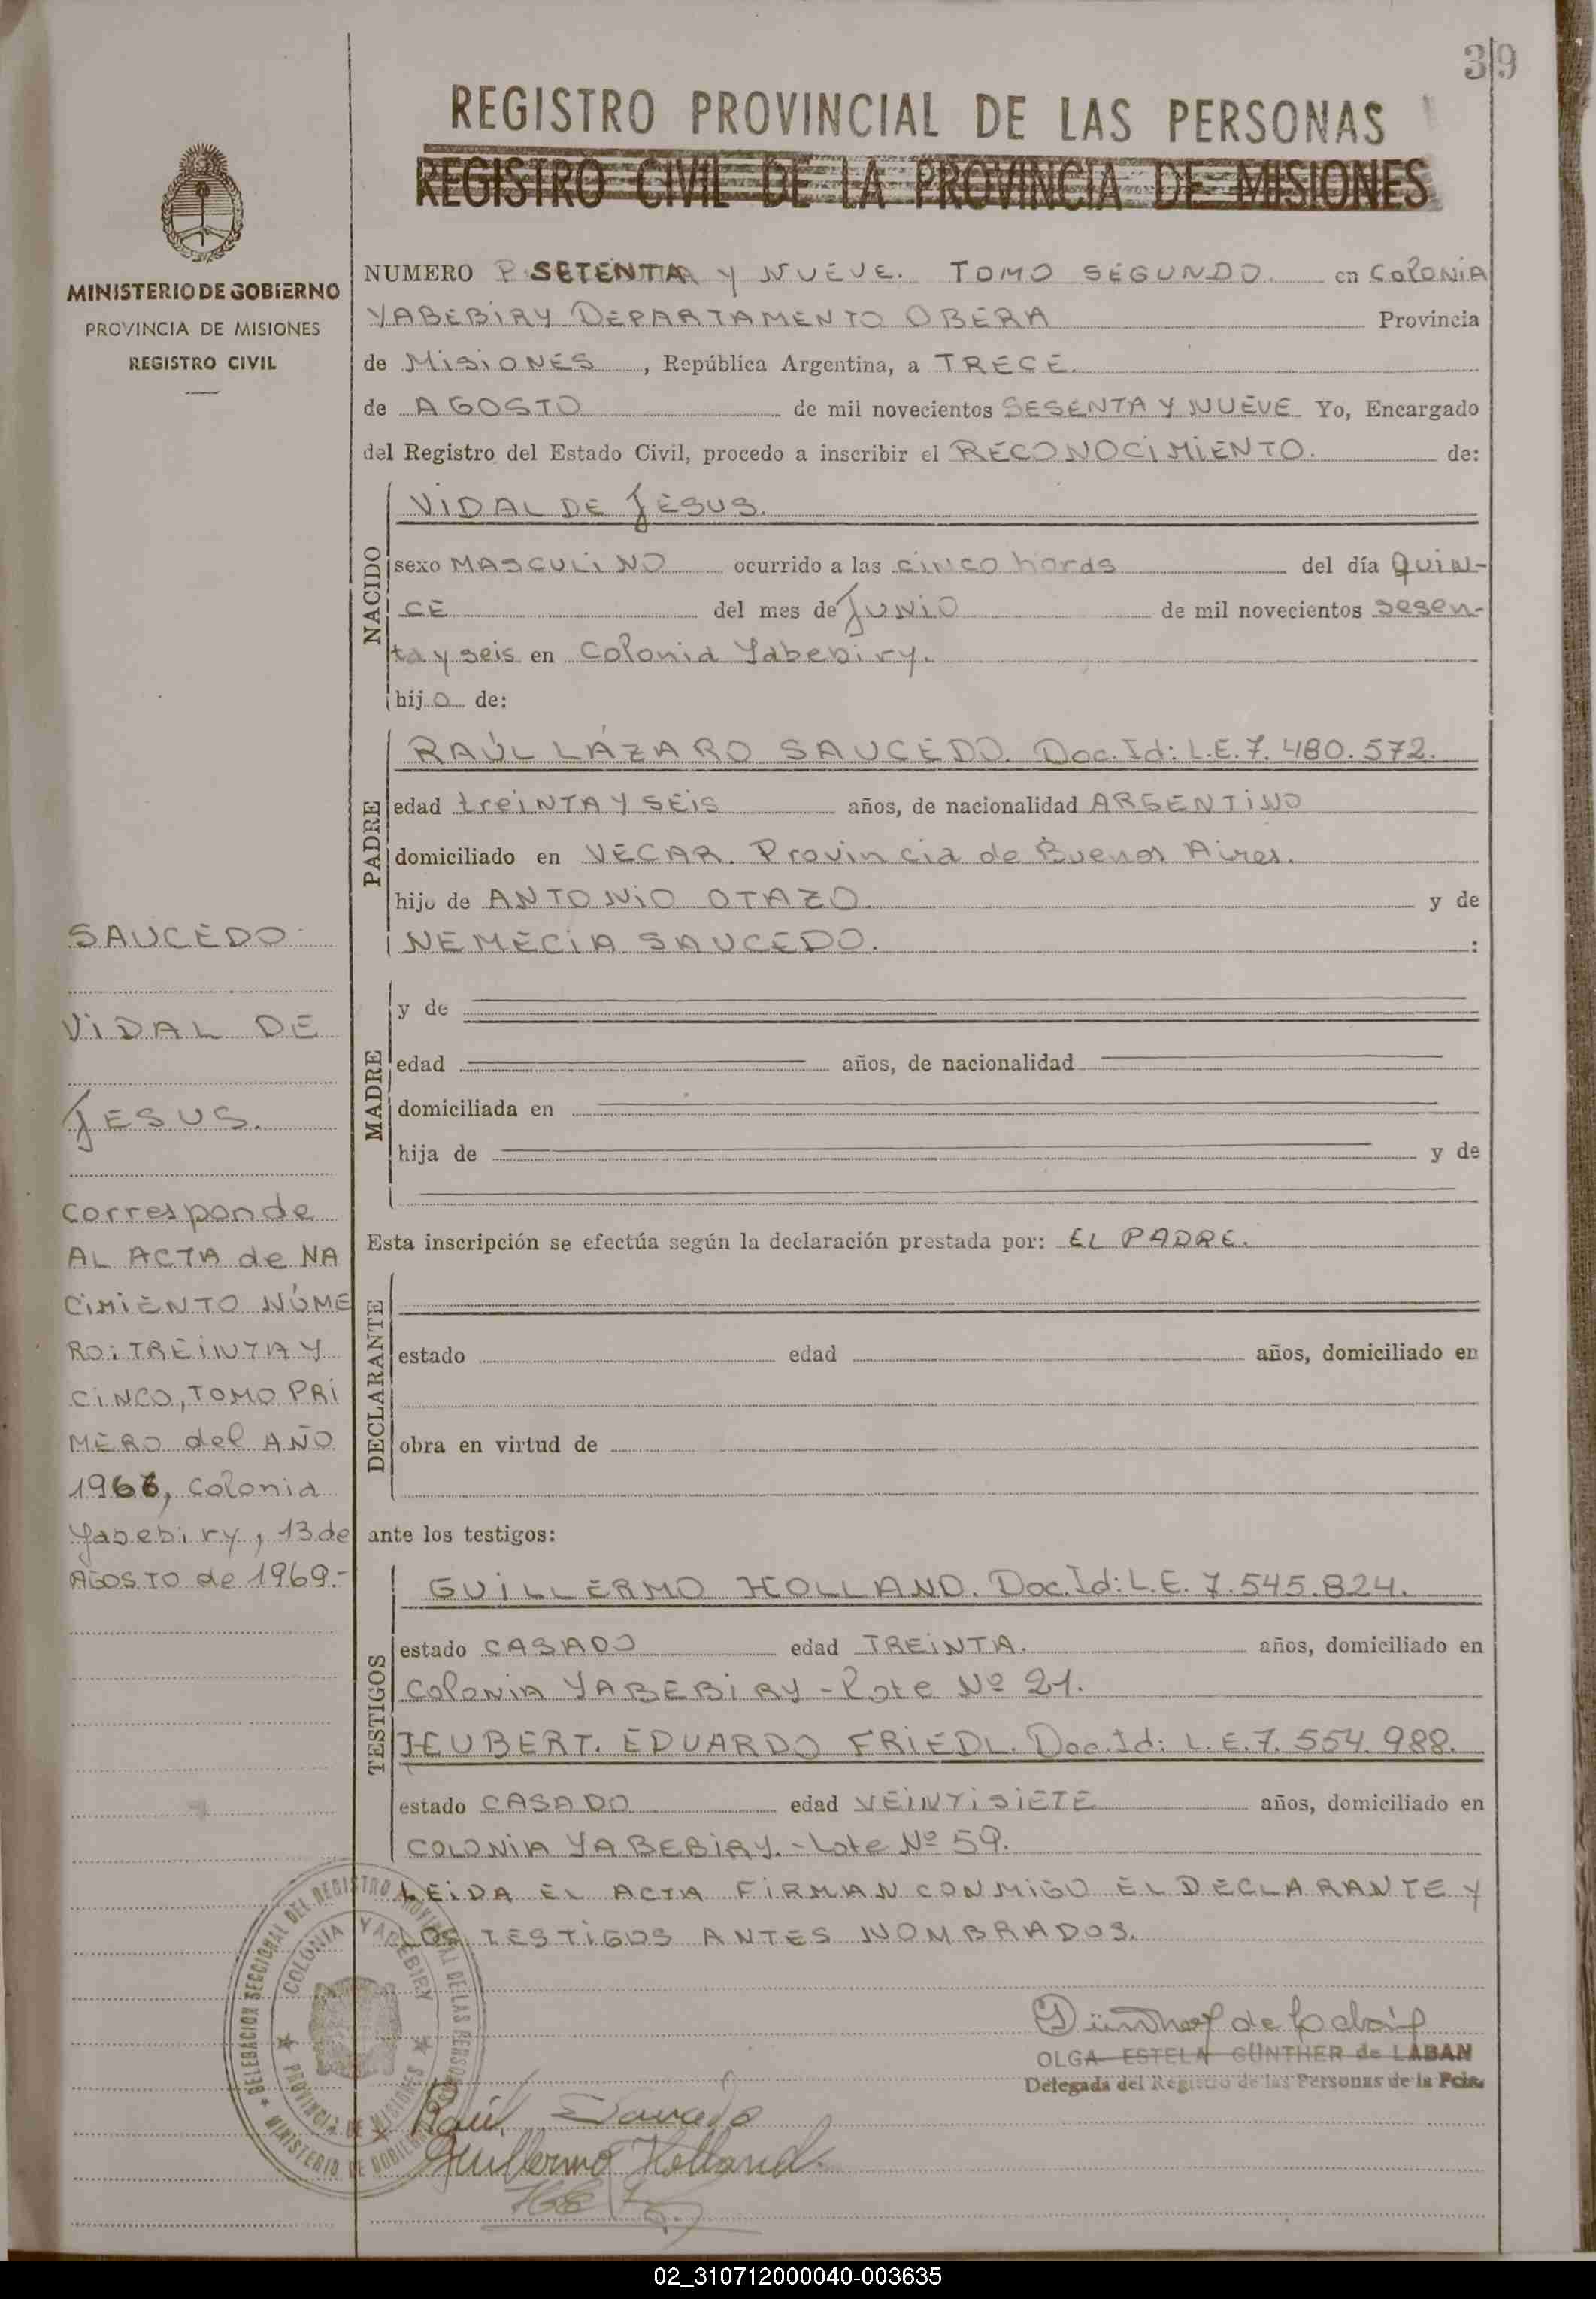 39
REGISTRO PROVINCIAL DE LAS PERSONAS
REGISTRO CIVIL DE LA PROVINCIA DE MISIONES
MINISTERIO DE GOBIERNO
PROVINCIA DE MISIONES
REGISTRO CIVIL
NUMERO SETENTA Y NUEVE. TOMO SEGUNDO. en COLONIA
YABEBIRY DEPARTAMENTO OBERA Provincia
de MISIONES, República Argentina, a TRECE.
de AGOSTO de mil novecientos SESENTA Y NUEVE Yo, Encargado
del Registro del Estado Civil, procedo a inscribir el RECONOCIMIENTO. de:
NACIDO
VIDAL DE JESUS.
sexo MASCULINO ocurrido a las cinco horas del día QUIN-
CE del mes de JUNIO de mil novecientos sesen-
ta y seis en Colonia Yabebiry.
hijo de:
PADRE
RAÚL LÁZARO SAUCEDO. Doc. Id: L.E. 7.480.572.
edad treinta y seis años, de nacionalidad ARGENTINO
domiciliado en VECAR. Provincia de Buenos Aires.
hijo de ANTONIO OTAZO y de
NEMECIA SAUCEDO. :
MADRE
y de
edad años, de nacionalidad
domiciliada en
hija de y de
Esta inscripción se efectúa según la declaración prestada por: EL PADRE.
DECLARANTE
estado edad años, domiciliado en
obra en virtud de
ante los testigos:
TESTIGOS
GUILLERMO HOLLAND. Doc. Id: L.E. 7.545.824.
estado CASADO edad TREINTA. años, domiciliado en
COLONIA YABEBIRY - Lote Nº 21.
HUBERT. EDUARDO FRIEDL. Doc. Id: L.E. 7.554.988.
estado CASADO edad VEINTISIETE años, domiciliado en
COLONIA YABEBIRY. - Lote Nº 59.
LEIDA EL ACTA FIRMAN CONMIGO EL DECLARANTE Y
LOS TESTIGOS ANTES NOMBRADOS.
SAUCEDO
VIDAL DE
JESUS.
corresponde
AL ACTA de NA
CIMIENTO NÚME
RO: TREINTA Y
CINCO, TOMO PRI
MERO del AÑO
1966, Colonia
Yabebiry, 13 de
AGOSTO de 1969.-
DELEGACION SECCIONAL DEL REGISTRO PROVINCIAL DE LAS PERSONAS
COLONIA YABEBIRY
PROVINCIA DE MISIONES
MINISTERIO DE GOBIERNO
Günther de Laban
OLGA ESTELA GÜNTHER de LABAN
Delegada del Registro de las Personas de la Pcia.
Raúl Saucedo
Guillermo Holland.
02_310712000040-003635